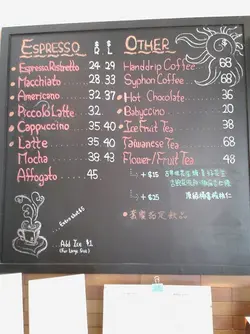 ESPRESSO
R L
Espresso Ristretto 24 29
Macchiato 28 33
Americano 32 37
Piccolo Latte 32
Cappuccino 35 40
Latte 35 40
Mocha 38 43
Affogato 45
Extra shot $5
Add Ice $1
OTHER
Handdrip Coffee 68
Syphon Coffee 68
Hot Chocolate 36
Babyccino 20
Ice Fruit Tea 38
Taiwanese Tea 68
Flower/Fruit Tea 48
+ $15
+ $25